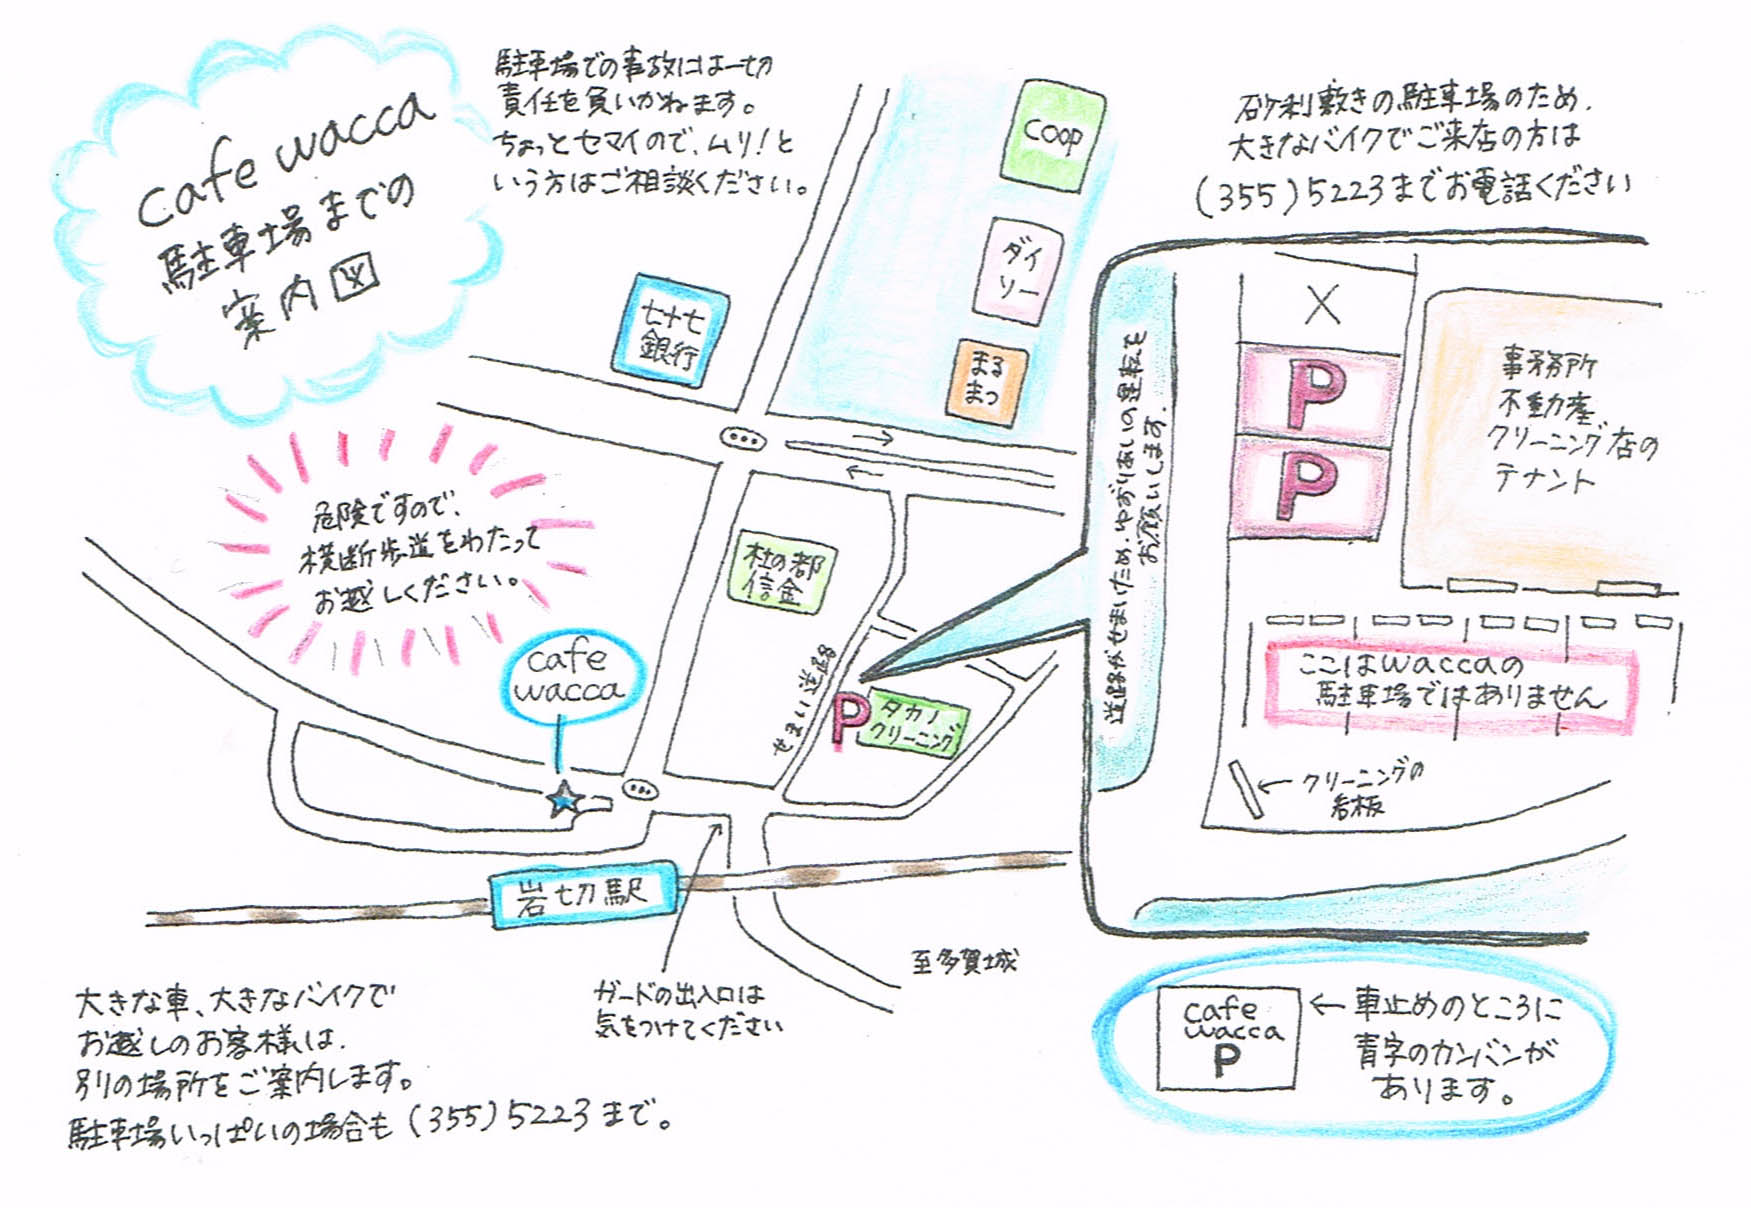 cafe wacca
駐車場までの
案内図
駐車場での事故には一切
責任を負いかねます。
ちょっとセマイので、ムリ!と
いう方はご相談ください。
砂利敷きの駐車場のため、
大きなバイクでご来店の方は
(355)5223までお電話ください
COOP
ダイ
ソー
まる
まつ
七十七
銀行
危険ですので、
横断歩道をわたって
お越しください。
杜の都
信金
cafe
wacca
せまい道路
P
タカノ
クリーニング
岩切駅
至多賀城
ガードの出入口は
気をつけてください
大きな車、大きなバイクで
お越しのお客様は、
別の場所をご案内します。
駐車場いっぱいの場合も(355)5223まで。
道路がせまいため、ゆずりあいの運転を
お願いします。
X
P
P
事務所
不動産、
クリーニング店の
テナント
ここはwaccaの
駐車場ではありません
←クリーニングの
看板
cafe
wacca
P
←車止めのところに
青字のカンバンが
あります。